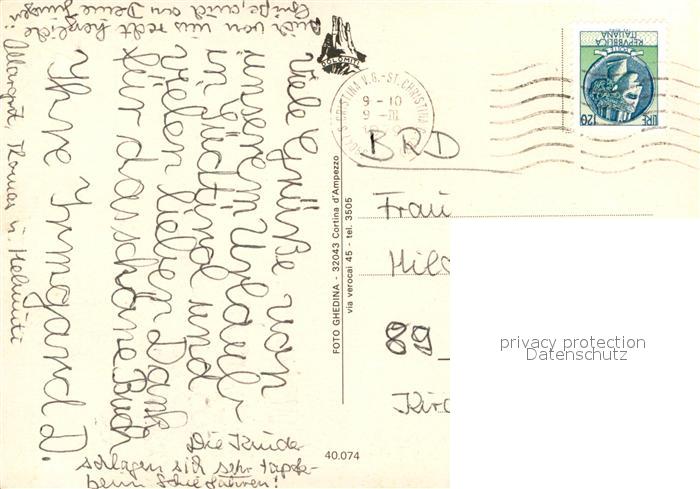 Viele Grüße von
unserem Urlaub
in Südtirol und
vielen lieben Dank
für das schöne Buch
Ihre Irmgard D.
Margret, Thomas u. Helmut
auch von uns recht herzliche
Grüße, auch an Deine Jungen!
Die Kinder
schlagen sich sehr tapfer
beim Schie fahren!
DOLOMITI
S. CRISTINA V.G. - ST. CHRISTINA
9 - 10
9 - III
REPVBBLICA
ITALIANA
LIRE 120
FOTO GHEDINA - 32043 Cortina d'Ampezzo
via verocai 45 - tel. 3505
40.074
BRD
Frau
89
privacy protection
Datenschutz